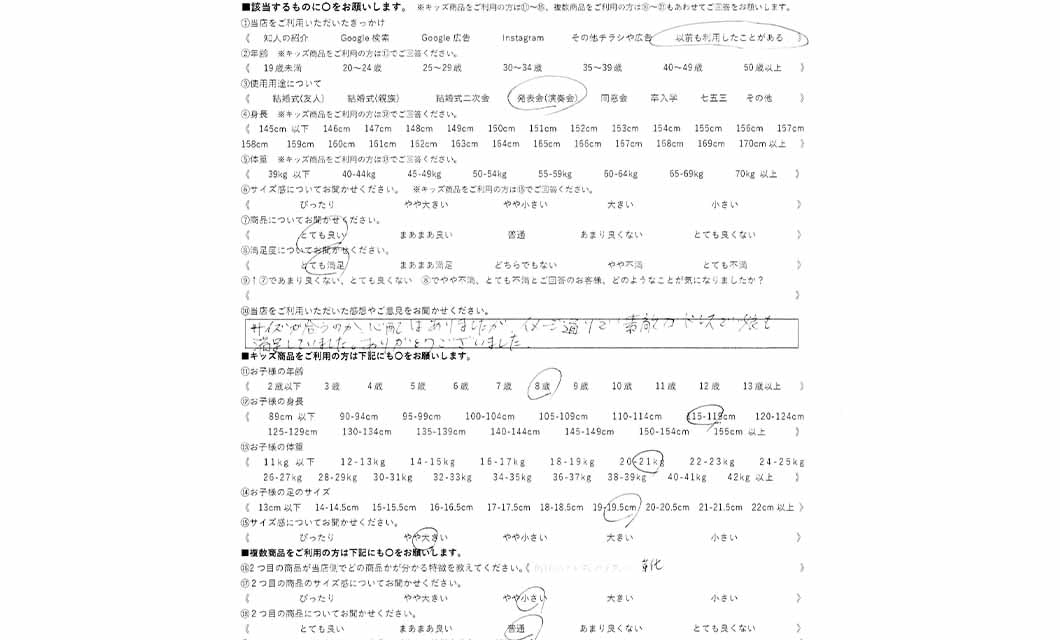 ■該当するものに〇をお願いします。 ※キッズ商品をご利用の方は⑪〜⑮、複数商品をご利用の方は⑯〜㉑もあわせてご回答をお願いします。
①当店をご利用いただいたきっかけ
《 知人の紹介 Google 検索 Google 広告 Instagram その他チラシや広告 以前も利用したことがある 》
②年齢 ※キッズ商品をご利用の方は⑪でご回答ください。
《 19歳未満 20〜24歳 25〜29歳 30〜34歳 35〜39歳 40〜49歳 50歳以上 》
③使用用途について
《 結婚式(友人) 結婚式(親族) 結婚式二次会 発表会(演奏会) 同窓会 卒入学 七五三 その他 》
④身長 ※キッズ商品をご利用の方は⑫でご回答ください。
《 145cm 以下 146cm 147cm 148cm 149cm 150cm 151cm 152cm 153cm 154cm 155cm 156cm 157cm
158cm 159cm 160cm 161cm 162cm 163cm 164cm 165cm 166cm 167cm 168cm 169cm 170cm以上 》
⑤体重 ※キッズ商品をご利用の方は⑬でご回答ください。
《 39kg 以下 40-44kg 45-49kg 50-54kg 55-59kg 60-64kg 65-69kg 70kg 以上 》
⑥サイズ感についてお聞かせください。 ※キッズ商品をご利用の方は⑮でご回答ください。
《 ぴったり やや大きい やや小さい 大きい 小さい 》
⑦商品についてお聞かせください。
《 とても良い まあまあ良い 普通 あまり良くない とても良くない 》
⑧満足度についてお聞かせください。
《 とても満足 まあまあ満足 どちらでもない やや不満 とても不満 》
⑨↑⑦であまり良くない、とても良くない ⑧でやや不満、とても不満とご回答のお客様、どのようなことが気になりましたか？
《 》
⑩当店をご利用いただいた感想やご意見をお聞かせください。
サイズが合うのか、心配はありましたが、イメージ通りで素敵なドレスで娘も
満足していました。ありがとうございました。
■キッズ商品をご利用の方は下記にも〇をお願いします。
⑪お子様の年齢
《 2歳以下 3歳 4歳 5歳 6歳 7歳 8歳 9歳 10歳 11歳 12歳 13歳以上 》
⑫お子様の身長
《 89cm 以下 90-94cm 95-99cm 100-104cm 105-109cm 110-114cm 115-119cm 120-124cm
125-129cm 130-134cm 135-139cm 140-144cm 145-149cm 150-154cm 155cm 以上 》
⑬お子様の体重
《 11kg 以下 12-13kg 14-15kg 16-17kg 18-19kg 20-21kg 22-23kg 24-25kg
26-27kg 28-29kg 30-31kg 32-33kg 34-35kg 36-37kg 38-39kg 40-41kg 42kg 以上 》
⑭お子様の足のサイズ
《 13cm 以下 14-14.5cm 15-15.5cm 16-16.5cm 17-17.5cm 18-18.5cm 19-19.5cm 20-20.5cm 21-21.5cm 22cm 以上 》
⑮サイズ感についてお聞かせください。
《 ぴったり やや大きい やや小さい 大きい 小さい 》
■複数商品をご利用の方は下記にも〇をお願いします。
⑯2つ目の商品が当店側でどの商品かが分かる特徴を教えてください。《 靴 》
⑰2つ目の商品のサイズ感についてお聞かせください。
《 ぴったり やや大きい やや小さい 大きい 小さい 》
⑱2つ目の商品についてお聞かせください。
《 とても良い まあまあ良い 普通 あまり良くない とても良くない 》